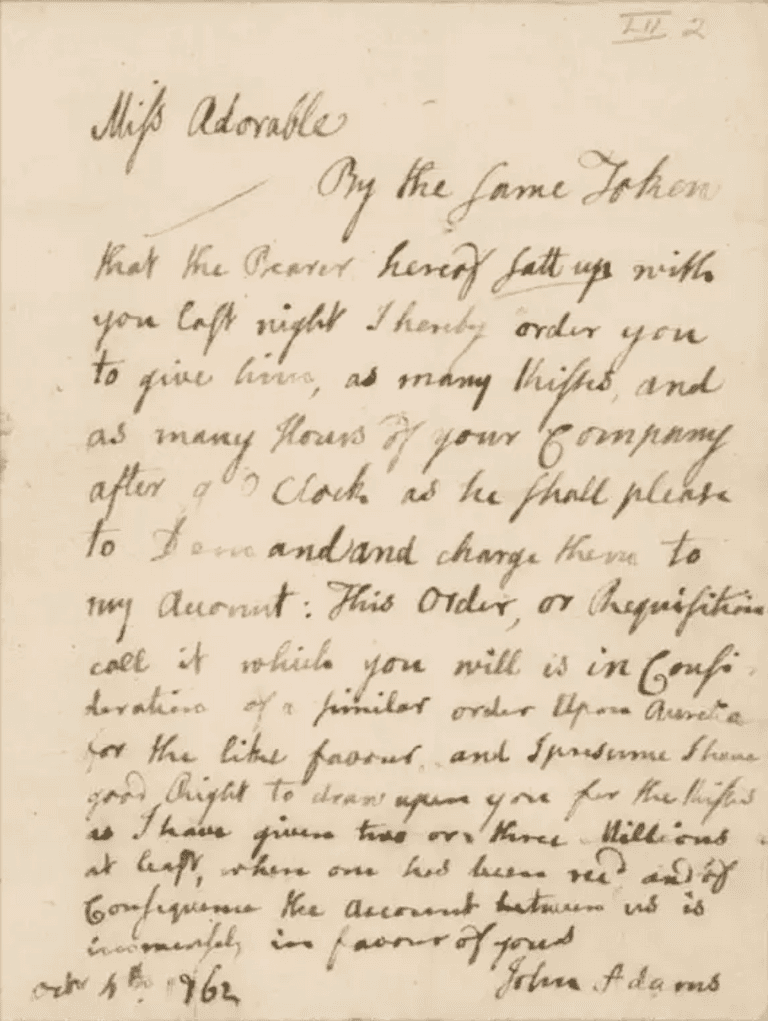 LII 2
Miss Adorable
By the same Token
that the Bearer hereof satt up with
you last night I hereby order you
to give him, as many Kisses, and
as many Hours of your Company
after 9 O Clock as he shall please
to Demand and charge them to
my Account: This Order, or Requisition
call it which you will is in Consi
deration of a similar order Upon Aurelia
for the like favour, and I presume I have
good Right to draw upon you for the Kisses
as I have given two or three Millions
at least, when one has been recd and of
Consequence the Account between us is
immensely in favour of yours
John Adams
Octr 4th 1762